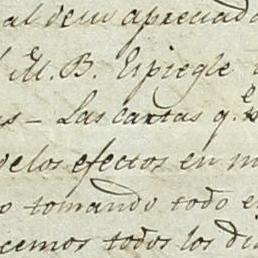 al de su apreciada
M. B. Espiegle
s – Las cartas q.e
de los efectos en m
o tomando todo e
cemos todos los di